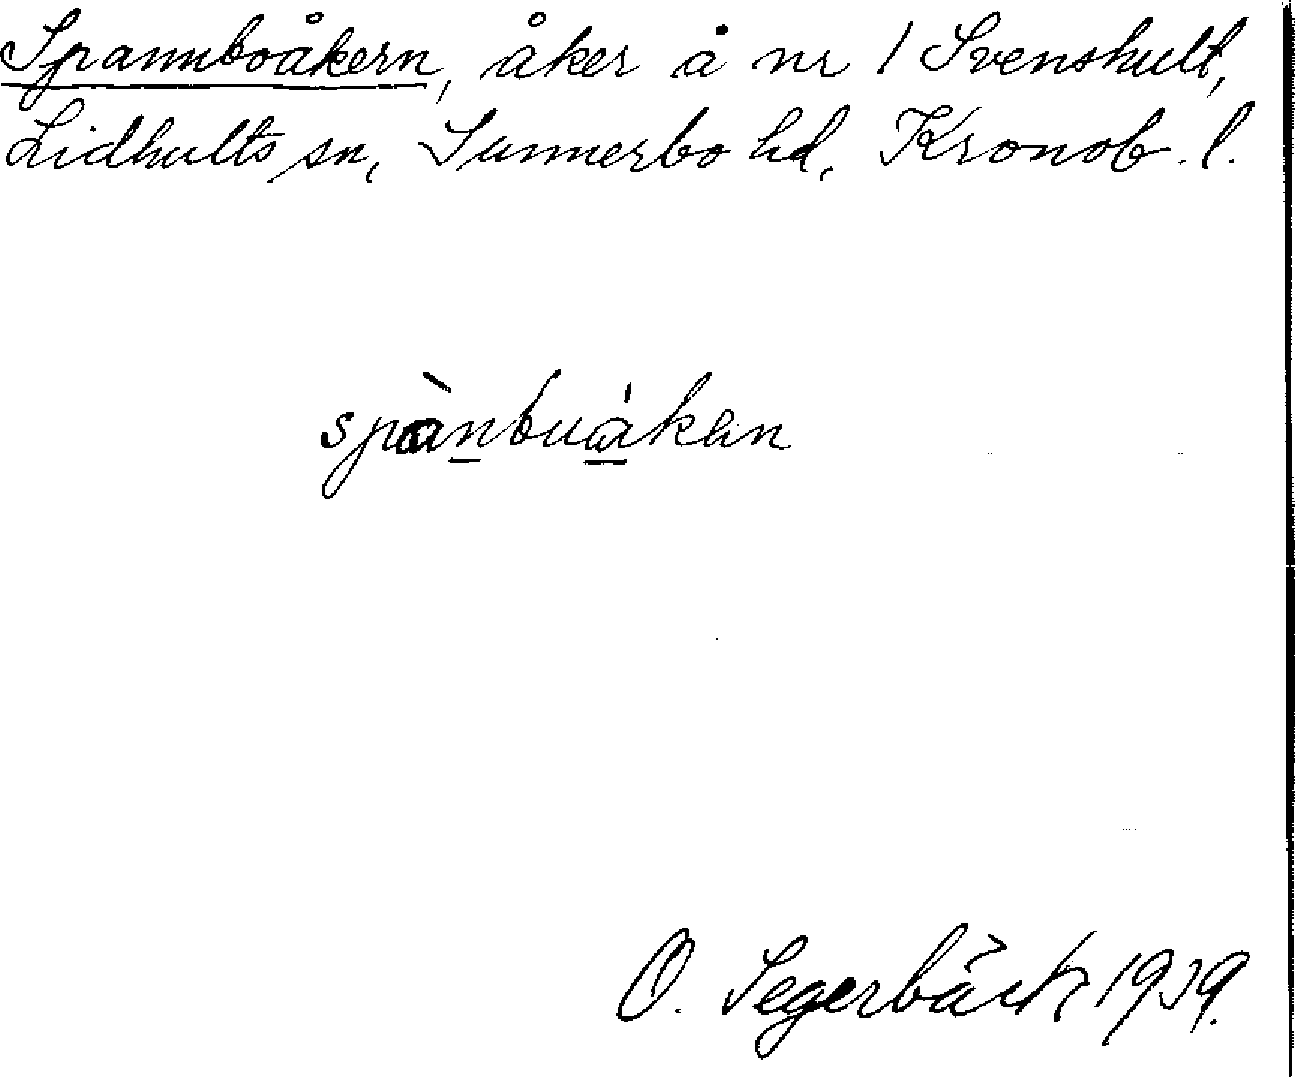 Spannboåkern, åker å nr 1 Svenshult,
Lidhults sn, Sunnerbo hd, Kronob. l.
spànbuákan
O. Segerbäck 1939.